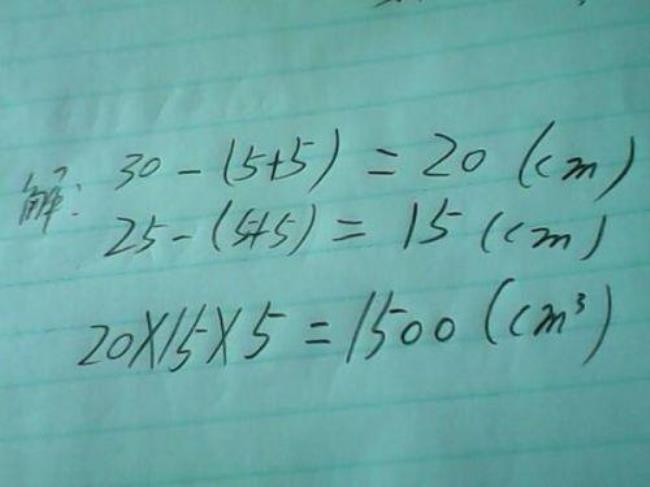 解: 30-(5+5)=20(cm)
25-(5+5)=15(cm)
20×15×5=1500(cm³)